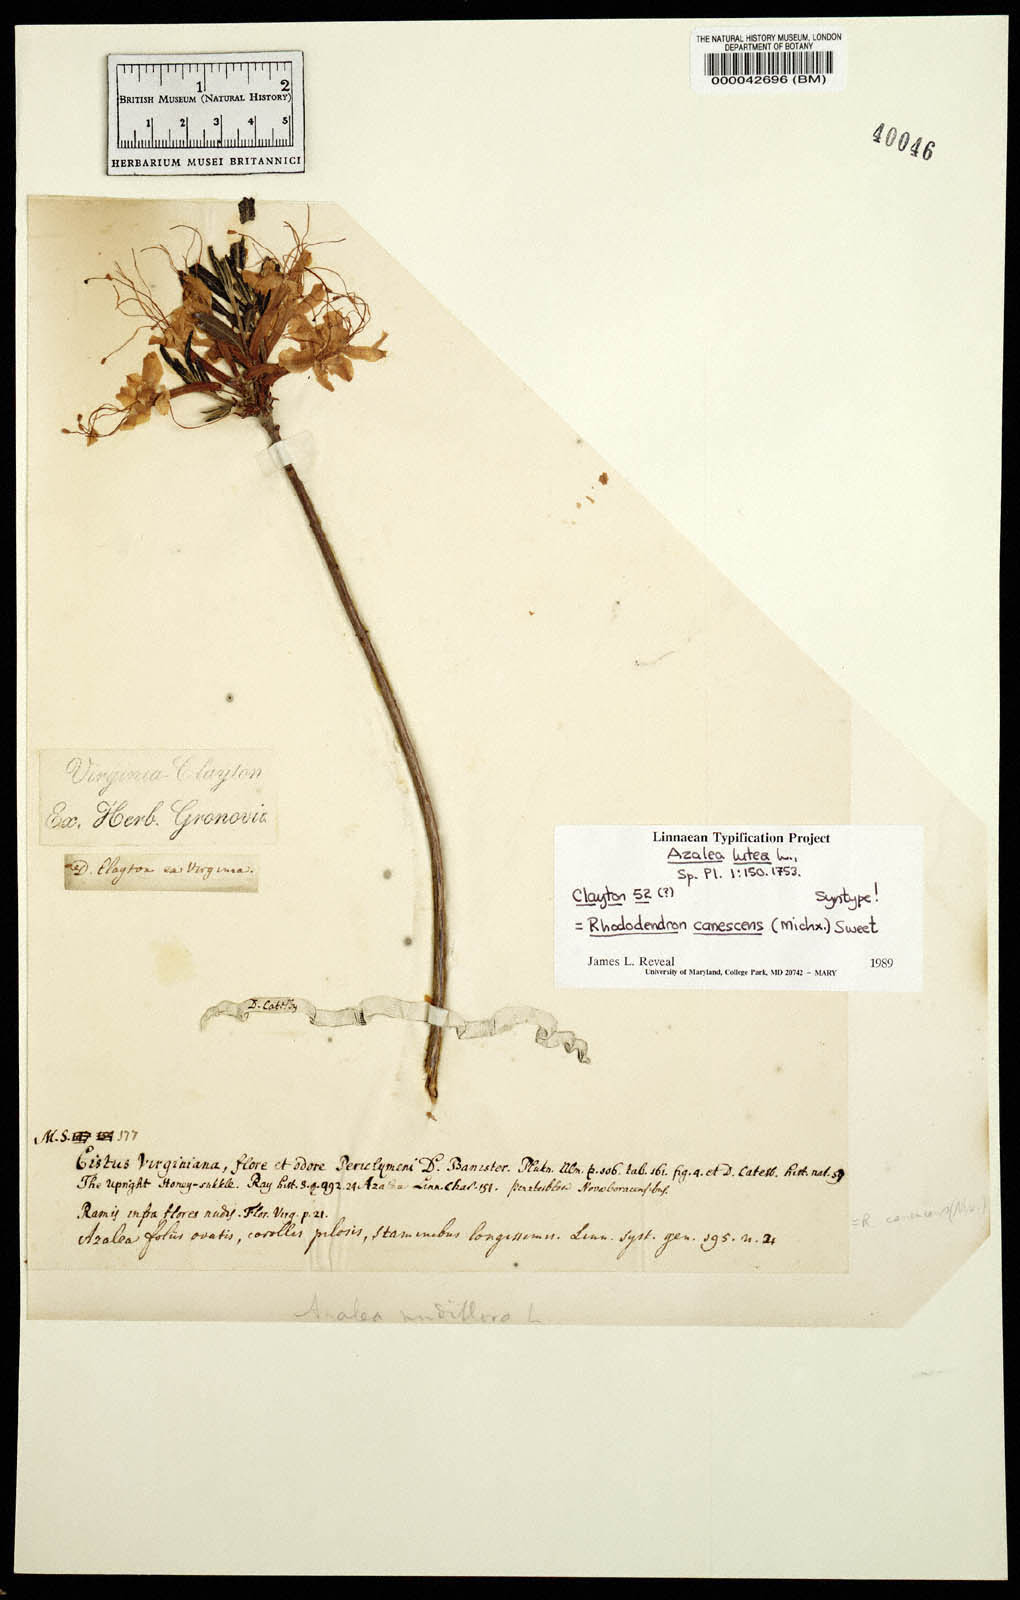 THE NATURAL HISTORY MUSEUM, LONDON
DEPARTMENT OF BOTANY
000042696 (BM)
40046
1 2
BRITISH MUSEUM (NATURAL HISTORY)
1 2 3 4 5
HERBARIUM MUSEI BRITANNICI
Virginia Clayton
Ex. Herb. Gronovii
D. Clayton ex Virginia.
Linnaean Typification Project
Azalea lutea L.,
Sp. Pl. 1:150. 1753.
Clayton 52 (?) Syntype!
= Rhododendron canescens (Michx.) Sweet
James L. Reveal 1989
University of Maryland, College Park, MD 20742 – MARY
D. Catesby
M.S. 177
Cistus Virginiana, flore et odore Periclymeni D. Banister. Plukn. Alm. p. 106. tab. 161. fig. 4. et D. Catesb. hist. nat. 57
The upright Honey-suckle. Ray hist. 3. 492. 24. Azalea Linn. Char. 151. Noveboracensibus.
Ramis infra flores nudis. Flor. Virg. p. 21.
Azalea foliis ovatis, corollis pilosis, staminibus longissimis. Linn. syst. gen. 195. n. 2
= R. canescens (Mx.)
Azalea nudiflora L.